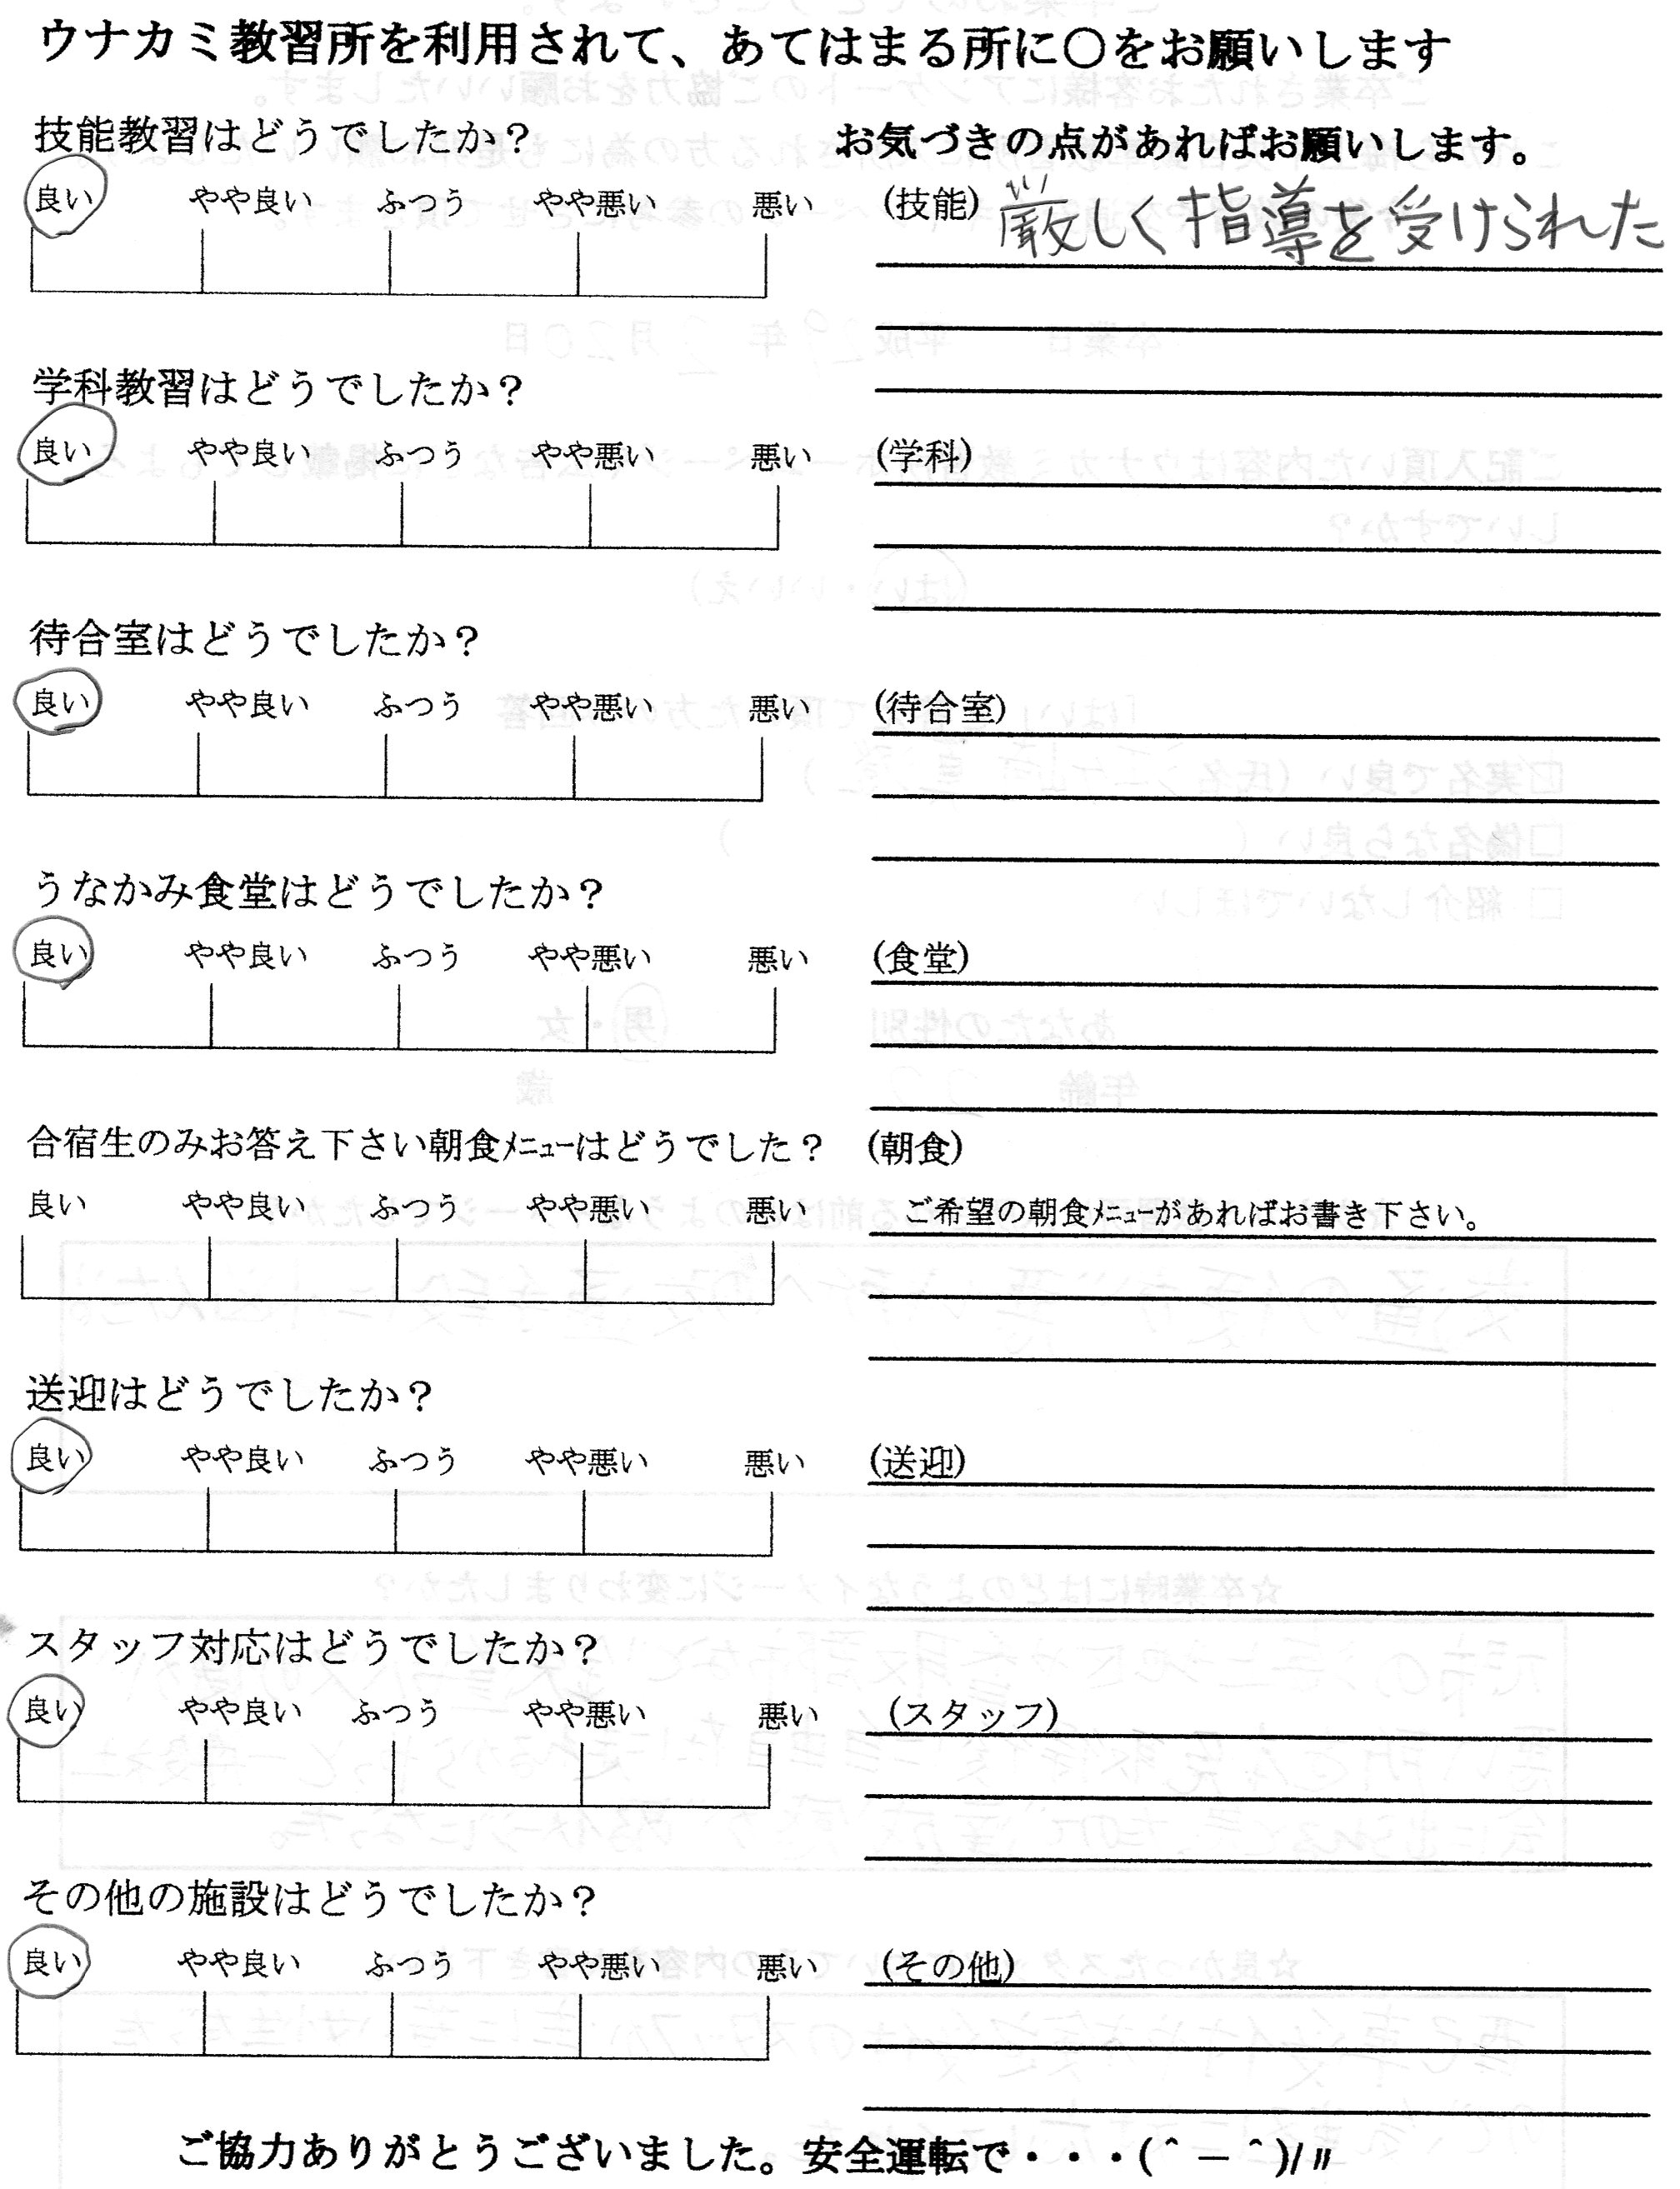 ウナカミ教習所を利用されて、あてはまる所に〇をお願いします
技能教習はどうでしたか？
お気づきの点があればお願いします。
良い やや良い ふつう やや悪い 悪い
(技能) 厳しく指導を受けられた
学科教習はどうでしたか？
良い やや良い ふつう やや悪い 悪い
(学科)
待合室はどうでしたか？
良い やや良い ふつう やや悪い 悪い
(待合室)
うなかみ食堂はどうでしたか？
良い やや良い ふつう やや悪い 悪い
(食堂)
合宿生のみお答え下さい朝食ﾒﾆｭｰはどうでした？
(朝食)
良い やや良い ふつう やや悪い 悪い
ご希望の朝食ﾒﾆｭｰがあればお書き下さい。
送迎はどうでしたか？
良い やや良い ふつう やや悪い 悪い
(送迎)
スタッフ対応はどうでしたか？
良い やや良い ふつう やや悪い 悪い
(スタッフ)
その他の施設はどうでしたか？
良い やや良い ふつう やや悪い 悪い
(その他)
ご協力ありがとうございました。安全運転で・・・(＾－＾)/〃